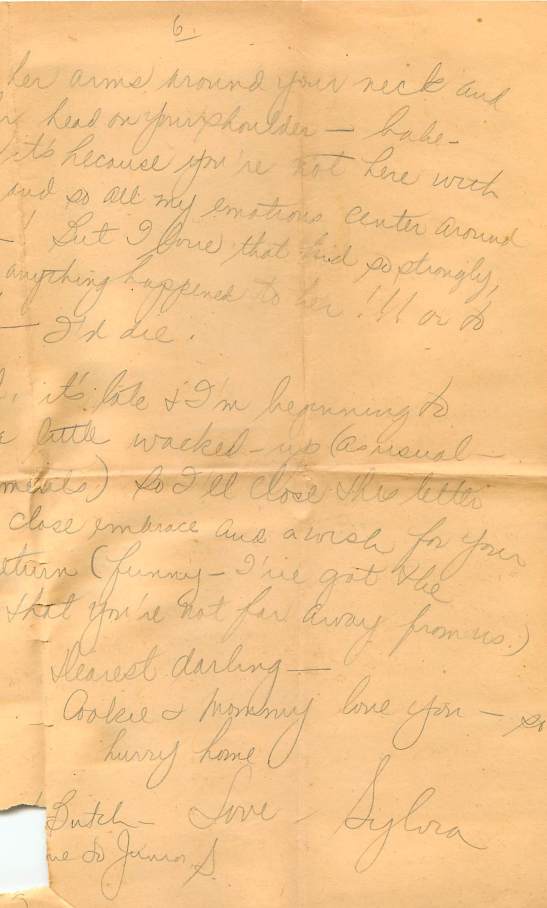 6.
her arms around your neck and
head on your shoulder — babe —
it's because you're not here with
and so all my emotions center around
— ! But I love that kid so strongly,
anything happened to her !!! or to
— I'd die.
it's late & I'm beginning to
little wacked-up (as usual —
) so I'll close this letter
close embrace and a wish for your
(funny — I've got the
that you're not far away from us.)
Dearest darling —
Cookie & Mommy love you — so
hurry home
Butch — Love — Sylvia
to Junior S.